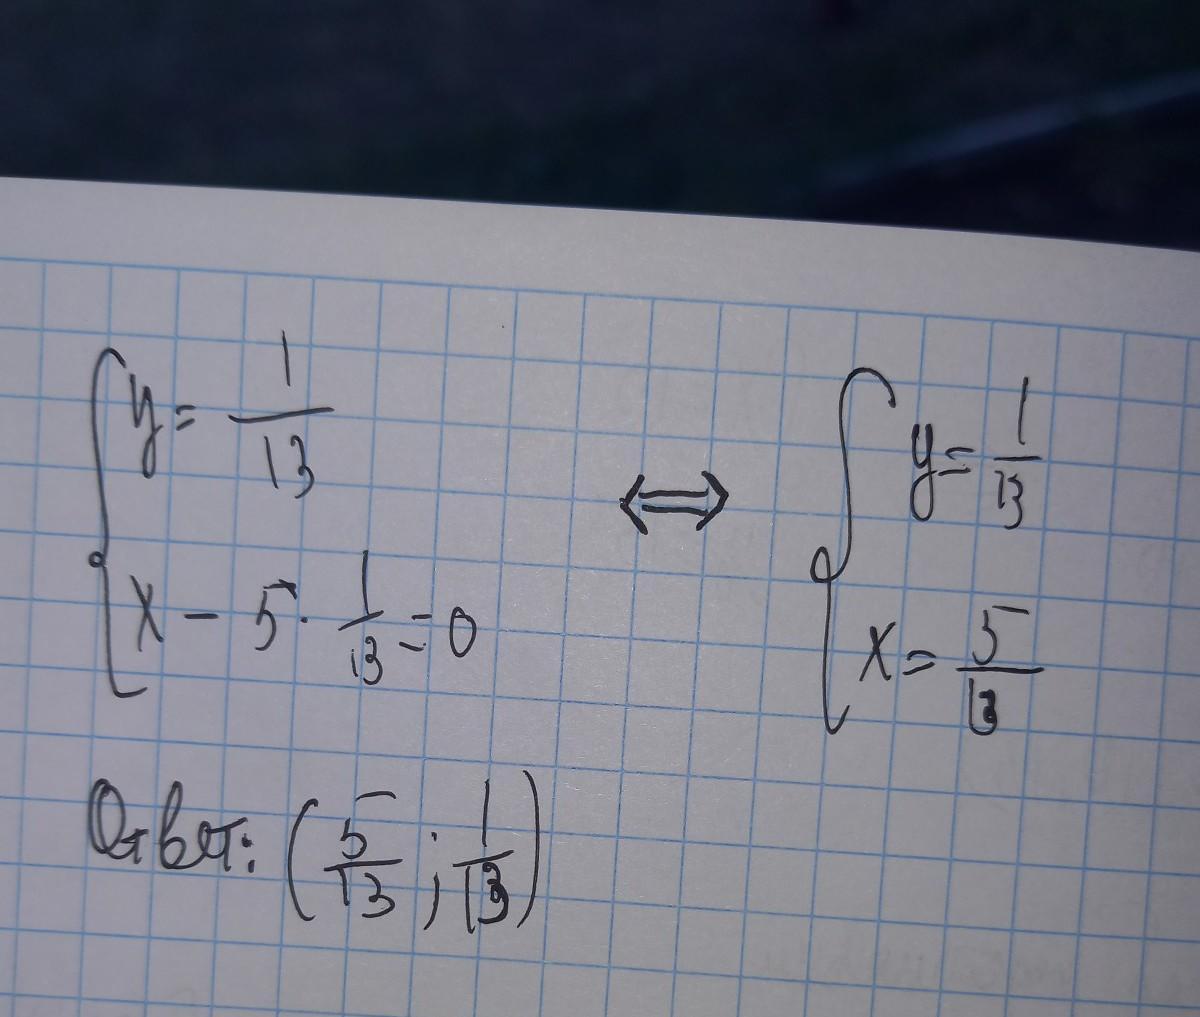 { y = 1/13 ⟺ { y = 1/13
x - 5 · 1/13 = 0 x = 5/13
Ответ: (5/13 ; 1/13)